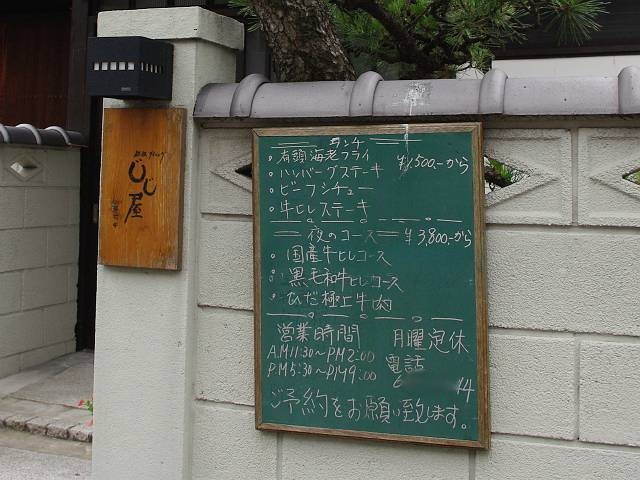 じじ屋
ランチ
有頭海老フライ ¥1,500,-から
ハンバーグステーキ
ビーフシチュー
牛ヒレステーキ
夜のコース ¥3,800,-から
国産牛ヒレコース
黒毛和牛ヒレコース
ひだ極上牛肉
営業時間 月曜定休
A.M11:30〜P.M2:00 電話
P.M5:30〜P.M9:00 6 14
ご予約をお願い致します。